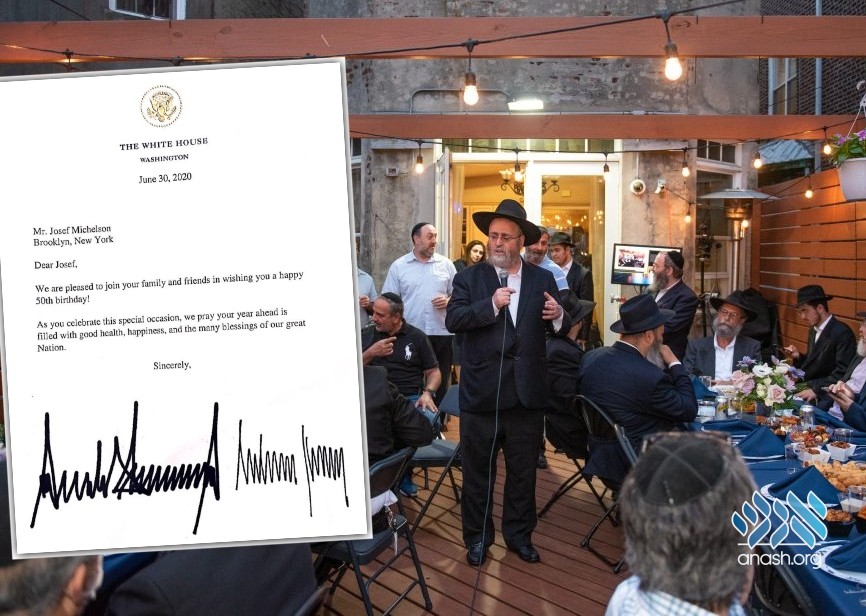 THE WHITE HOUSE
WASHINGTON
June 30, 2020
Mr. Josef Michelson
Brooklyn, New York
Dear Josef,
We are pleased to join your family and friends in wishing you a happy
50th birthday!
As you celebrate this special occasion, we pray your year ahead is
filled with good health, happiness, and the many blessings of our great
Nation.
Sincerely,
אנש
anash.org